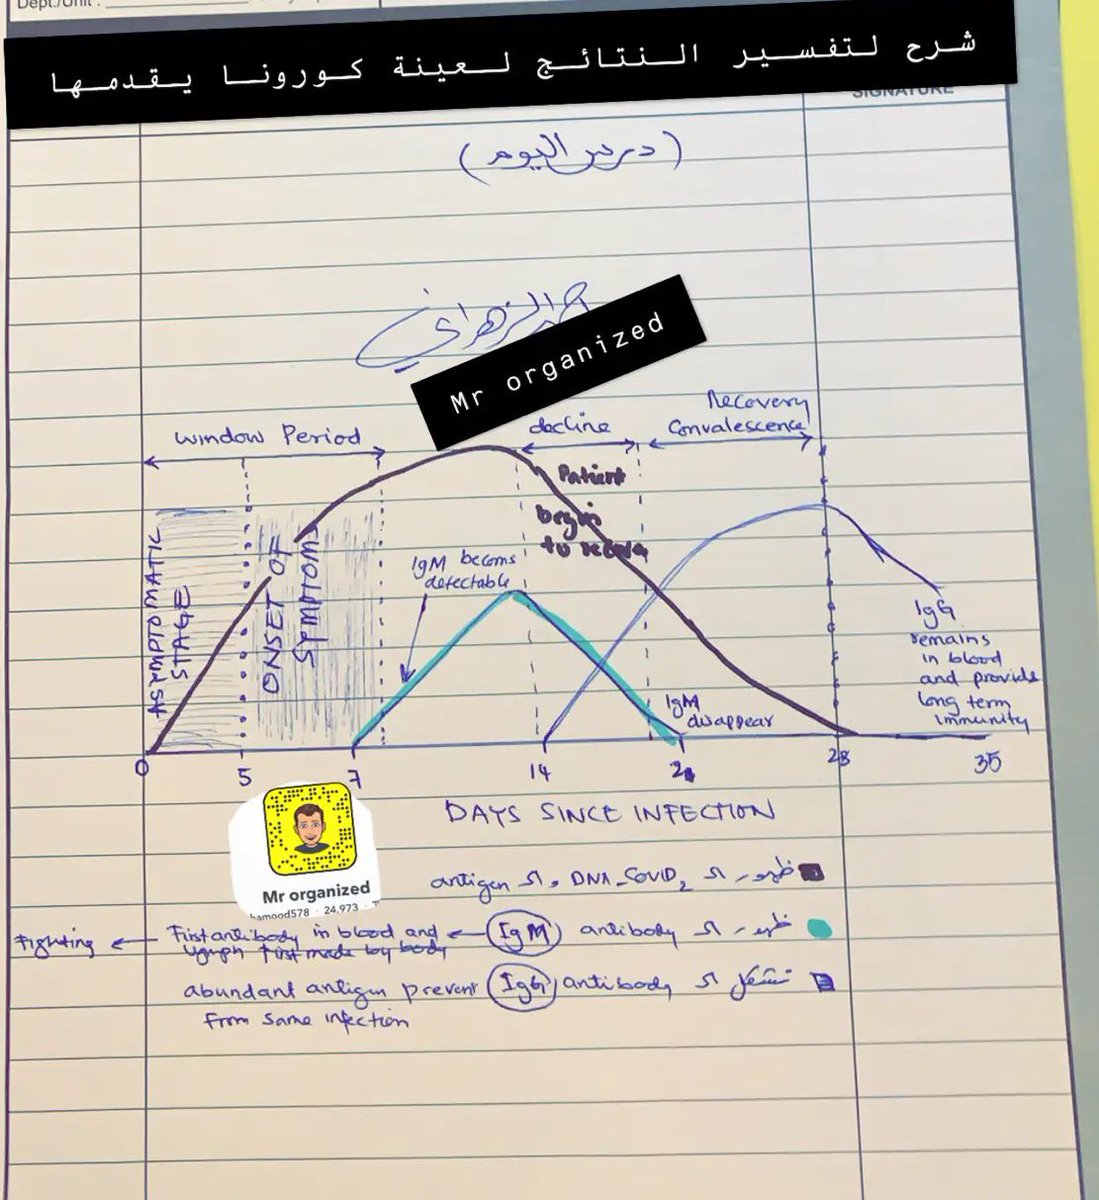 Dept./Unit :
شرح لتفسير النتائج لعينة كورونا يقدمها
SIGNATURE
(درس اليوم)
الزهراني
Mr organized
window Period
decline
Recovery
Convalescence
Patient
begin
to
ASYMPTOMATIC
STAGE
ONSET OF
SYMPTOMS
IgM becoms
detectable
IgM
disappear
IgG
remains
in blood
and provide
long term
immunity
0 5 7 14 21 28 35
DAYS SINCE INFECTION
Mr organized
hamood578 · 24,973
ظهور ال DNA_COVID2 و ال antigen
ظهور ال antibody (IgM) ← First antibody in blood and ← Fighting
lymph first made by body
تشكل ال antibody (IgG) abundant antigen prevent
from same infection